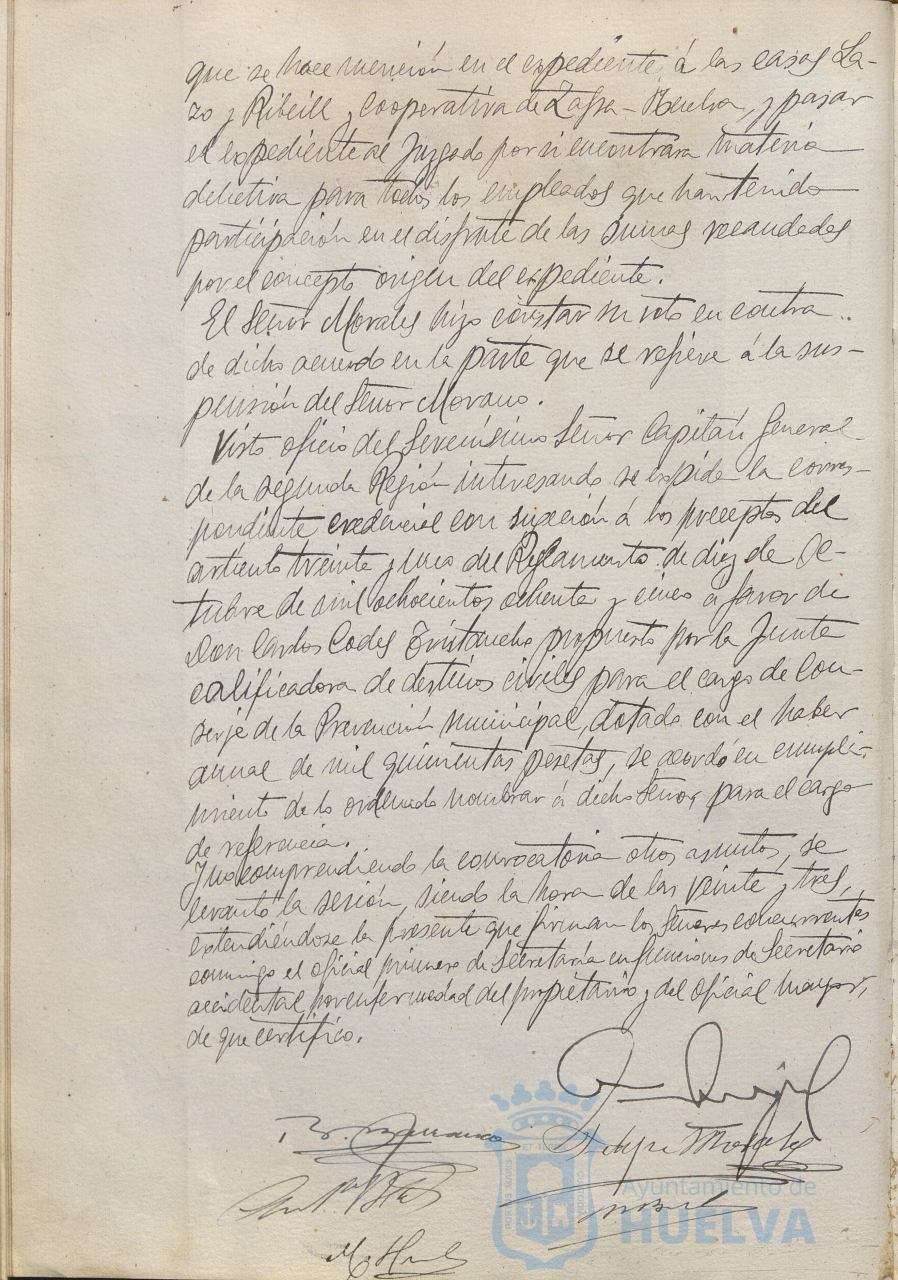 que se hace mención en el expediente, á las casas La-
zo y Ribeill y Cooperativa de Zafra-Huelva, y pasar
el expediente al Juzgado por si encontrara materia
delictiva para todos los empleados que han tenido
participación en el disfrute de las sumas recaudadas
por el concepto origen del expediente.
El Señor Morales hizo constar su voto en contra
de dicho acuerdo en la parte que se refiere á la sus-
pensión del Señor Morano.
Visto oficio del Serenísimo Señor Capitán General
de la segunda Región interesando se expida la corres-
pondiente credencial con sujeción á los preceptos del
artículo treinta y uno del Reglamento de diez de Oc-
tubre de mil ochocientos ochenta y cinco a favor de
Don Carlos Codes propuesto por la Junta
calificadora de destinos civiles para el cargo de Con-
serje de la Prevención municipal, dotado con el haber
anual de mil quinientas pesetas, se acordó en cumpli-
miento de lo ordenado nombrar á dicho Señor para el cargo
de referencia.
Y no comprendiendo la convocatoria otros asuntos, se
levantó la sesión, siendo la hora de las veinte y tres,
extendiéndose la presente que firman los Señores concurrentes
conmigo el oficial primero de Secretaría en funciones de Secretario
accidental por enfermedad del propietario y del oficial mayor,
de que certifico.
Felipe Morales
Ayuntamiento de
HUELVA